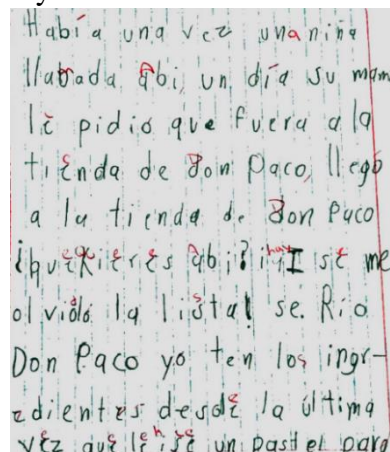 Había una vez una niña
llamada Abi, un día su mam
le pidio que fuera a la
tienda de Don Paco, llegó
a la tienda de Don Paco
¿que Kieres Abi? ¡hay! se me
olvido la lista! se. Rio
Don Paco yo ten los ingr-
edientes desde la última
vez que le hise un pastel para